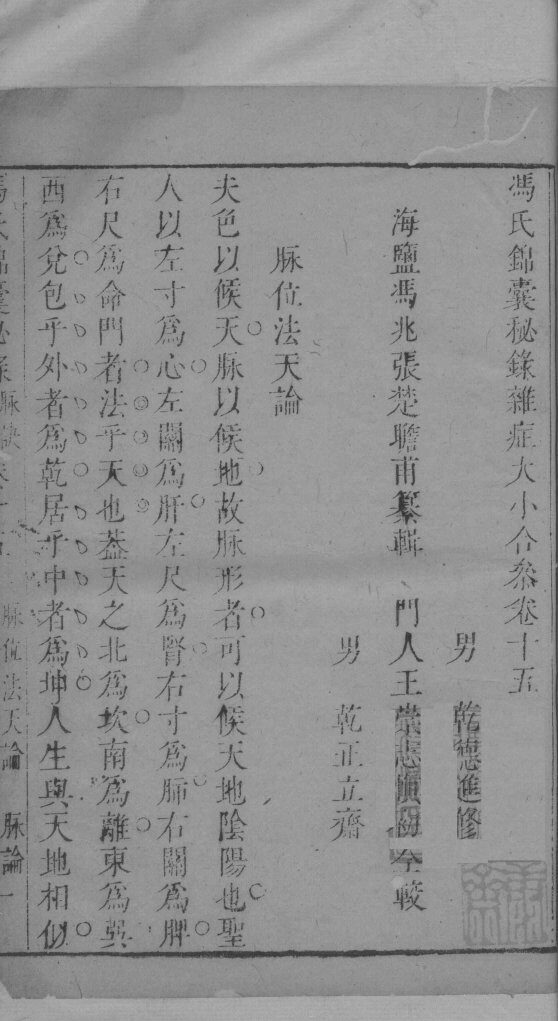 馮氏錦囊秘錄雜症大小合叅卷十五
男　乾德進修
海鹽馮兆張楚瞻甫纂輯　門人王崇志　仝較
男　乾正立齋
脉位法天論
夫色以候天脉以候地故脉形者可以候天地陰陽也聖
人以左寸爲心左關爲肝左尺爲腎右寸爲肺右關爲脾
右尺爲命門者法乎天也葢天之北爲坎南爲離東爲㢲
西爲兌包乎外者爲乾居乎中者爲坤人生與天地相似
馮氏錦囊秘錄　脉訣卷十五　脉位法天論　脉論一